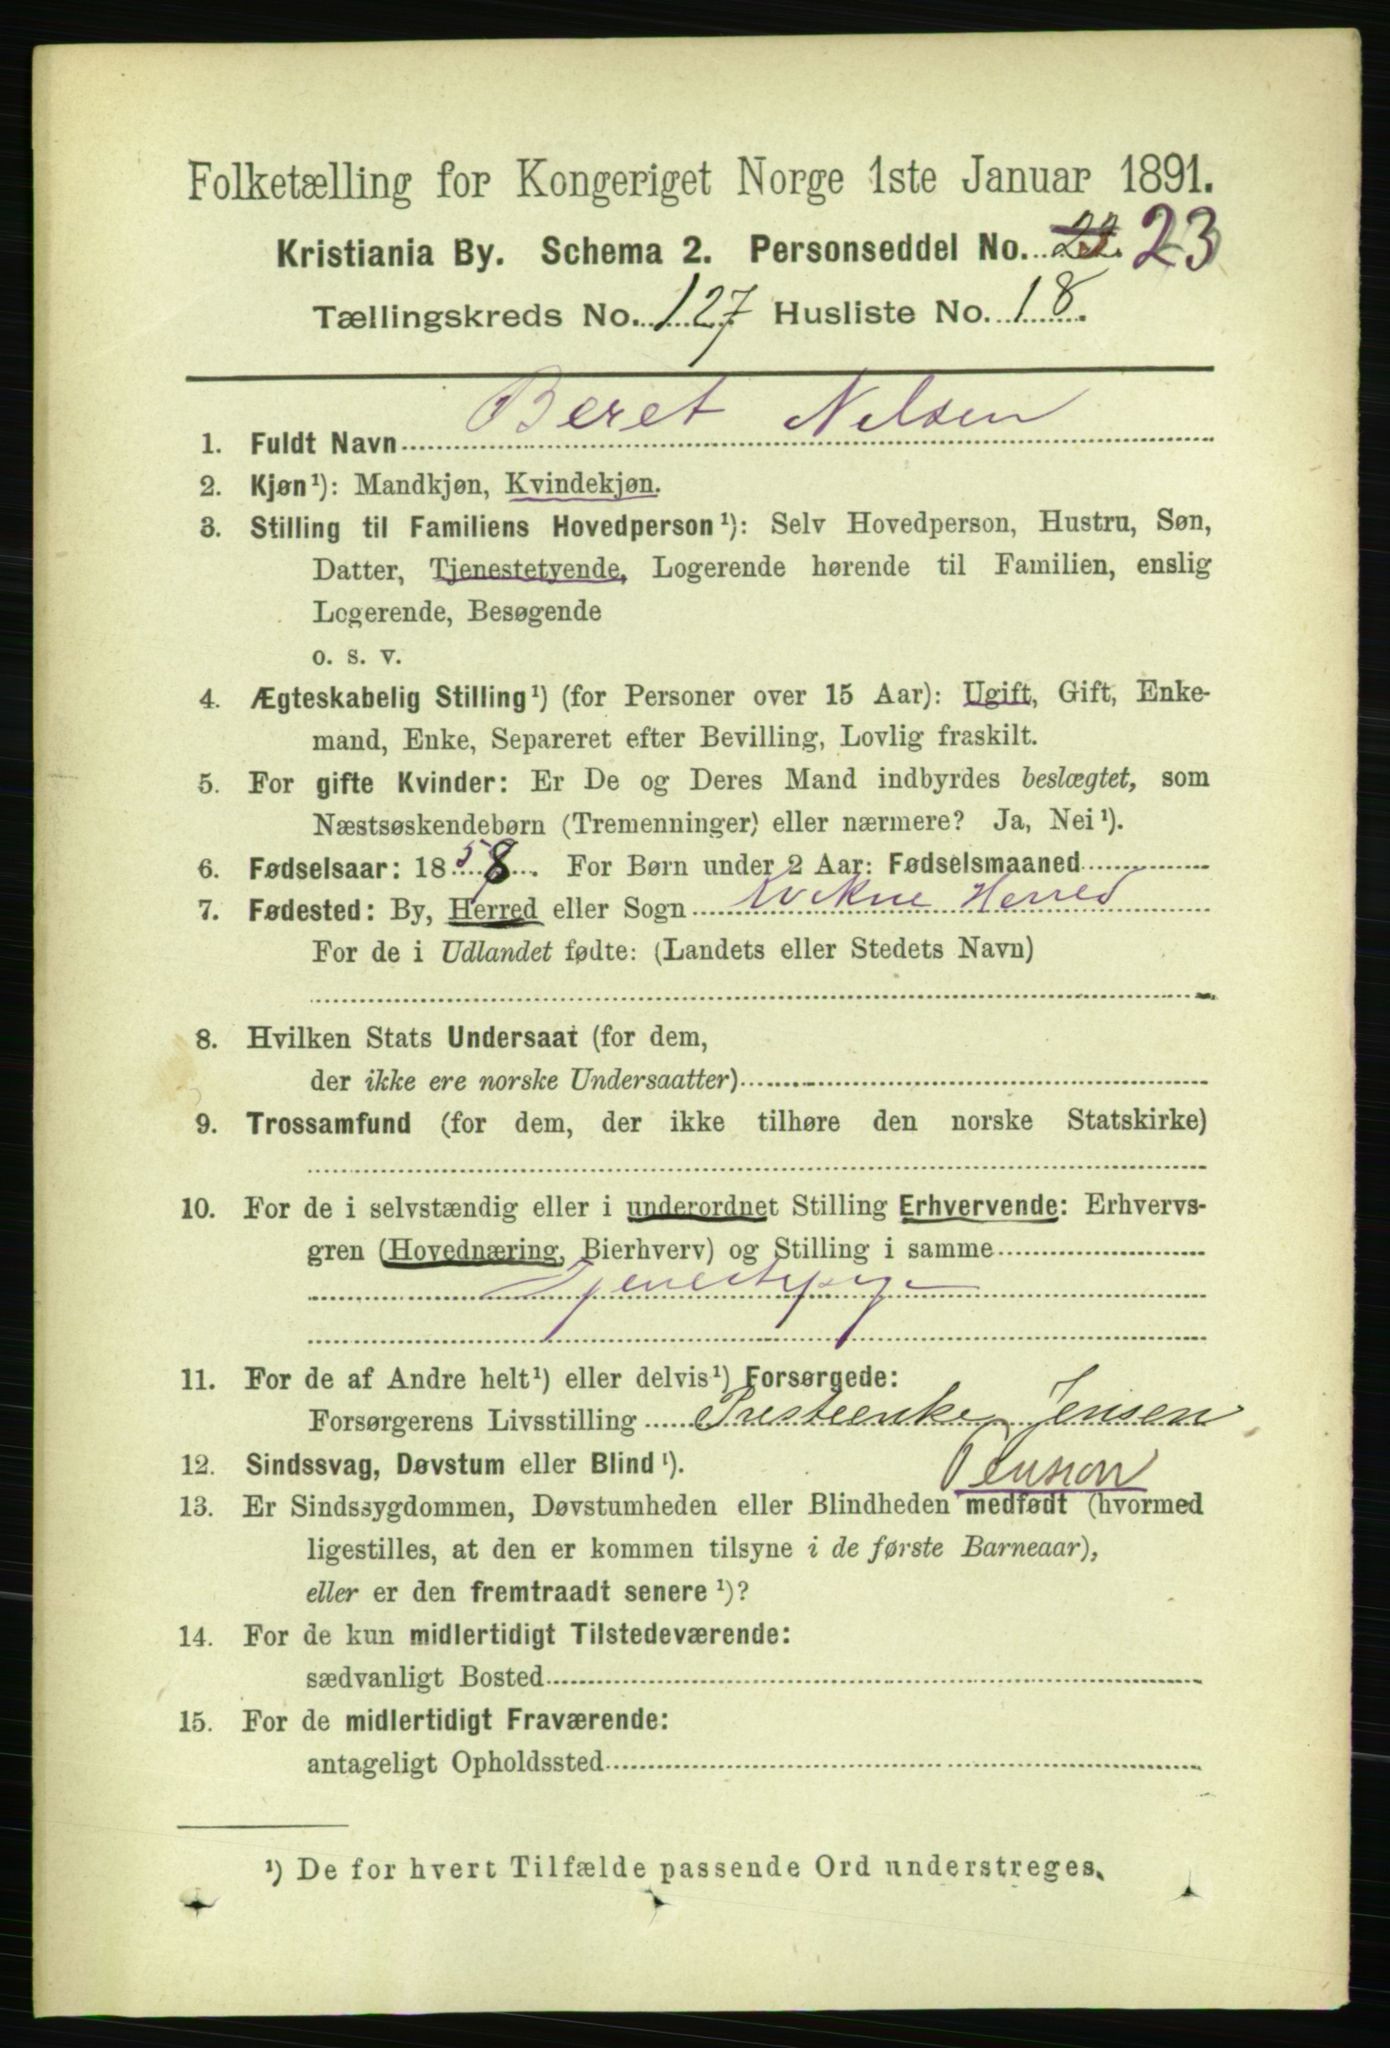 Folketælling for Kongeriget Norge 1ste Januar 1891.
Kristiania By. Schema 2. Personseddel No. 22. 23
Tællingskreds No. 127 Husliste No. 18.
1. Fuldt Navn Beret Nelsen
2. Kjøn¹): Mandkjøn, Kvindekjøn.
3. Stilling til Familiens Hovedperson¹): Selv Hovedperson, Hustru, Søn,
Datter, Tjenestetyende, Logerende hørende til Familien, enslig
Logerende, Besøgende
o. s. v.
4. Ægteskabelig Stilling¹) (for Personer over 15 Aar): Ugift, Gift, Enke-
mand, Enke, Separeret efter Bevilling, Lovlig fraskilt.
5. For gifte Kvinder: Er De og Deres Mand indbyrdes beslægtet, som
Næstsøskendebørn (Tremenninger) eller nærmere? Ja, Nei¹).
6. Fødselsaar: 1858. For Børn under 2 Aar: Fødselsmaaned
7. Fødested: By, Herred eller Sogn Kvikne Herred
For de i Udlandet fødte: (Landets eller Stedets Navn)
8. Hvilken Stats Undersaat (for dem,
der ikke ere norske Undersaatter)
9. Trossamfund (for dem, der ikke tilhøre den norske Statskirke)
10. For de i selvstændig eller i underordnet Stilling Erhvervende: Erhvervs-
gren (Hovednæring, Bierhverv) og Stilling i samme
Tjenestepige
11. For de af Andre helt¹) eller delvis¹) Forsørgede:
Forsørgerens Livsstilling Presteenke Jensen
12. Sindssvag, Døvstum eller Blind¹). Pension
13. Er Sindssygdommen, Døvstumheden eller Blindheden medfødt (hvormed
ligestilles, at den er kommen tilsyne i de første Barneaar),
eller er den fremtraadt senere¹)?
14. For de kun midlertidigt Tilstedeværende:
sædvanligt Bosted
15. For de midlertidigt Fraværende:
antageligt Opholdssted
¹) De for hvert Tilfælde passende Ord understreges.